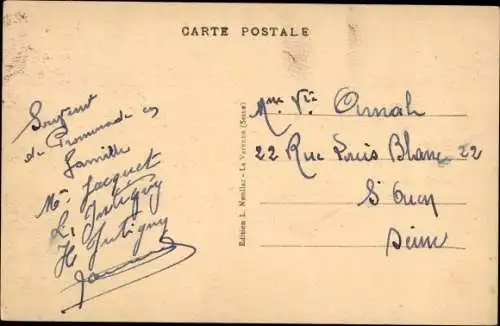 CARTE POSTALE
Souvenir
de Promenade en
famille
Mme Jacquet
L. Jutigny
H Jutigny
Edition L. Menilar - La Varenne (Seine)
Mme Vve Arnah
22 Rue Louis Blanc 22
St Ouen
Seine